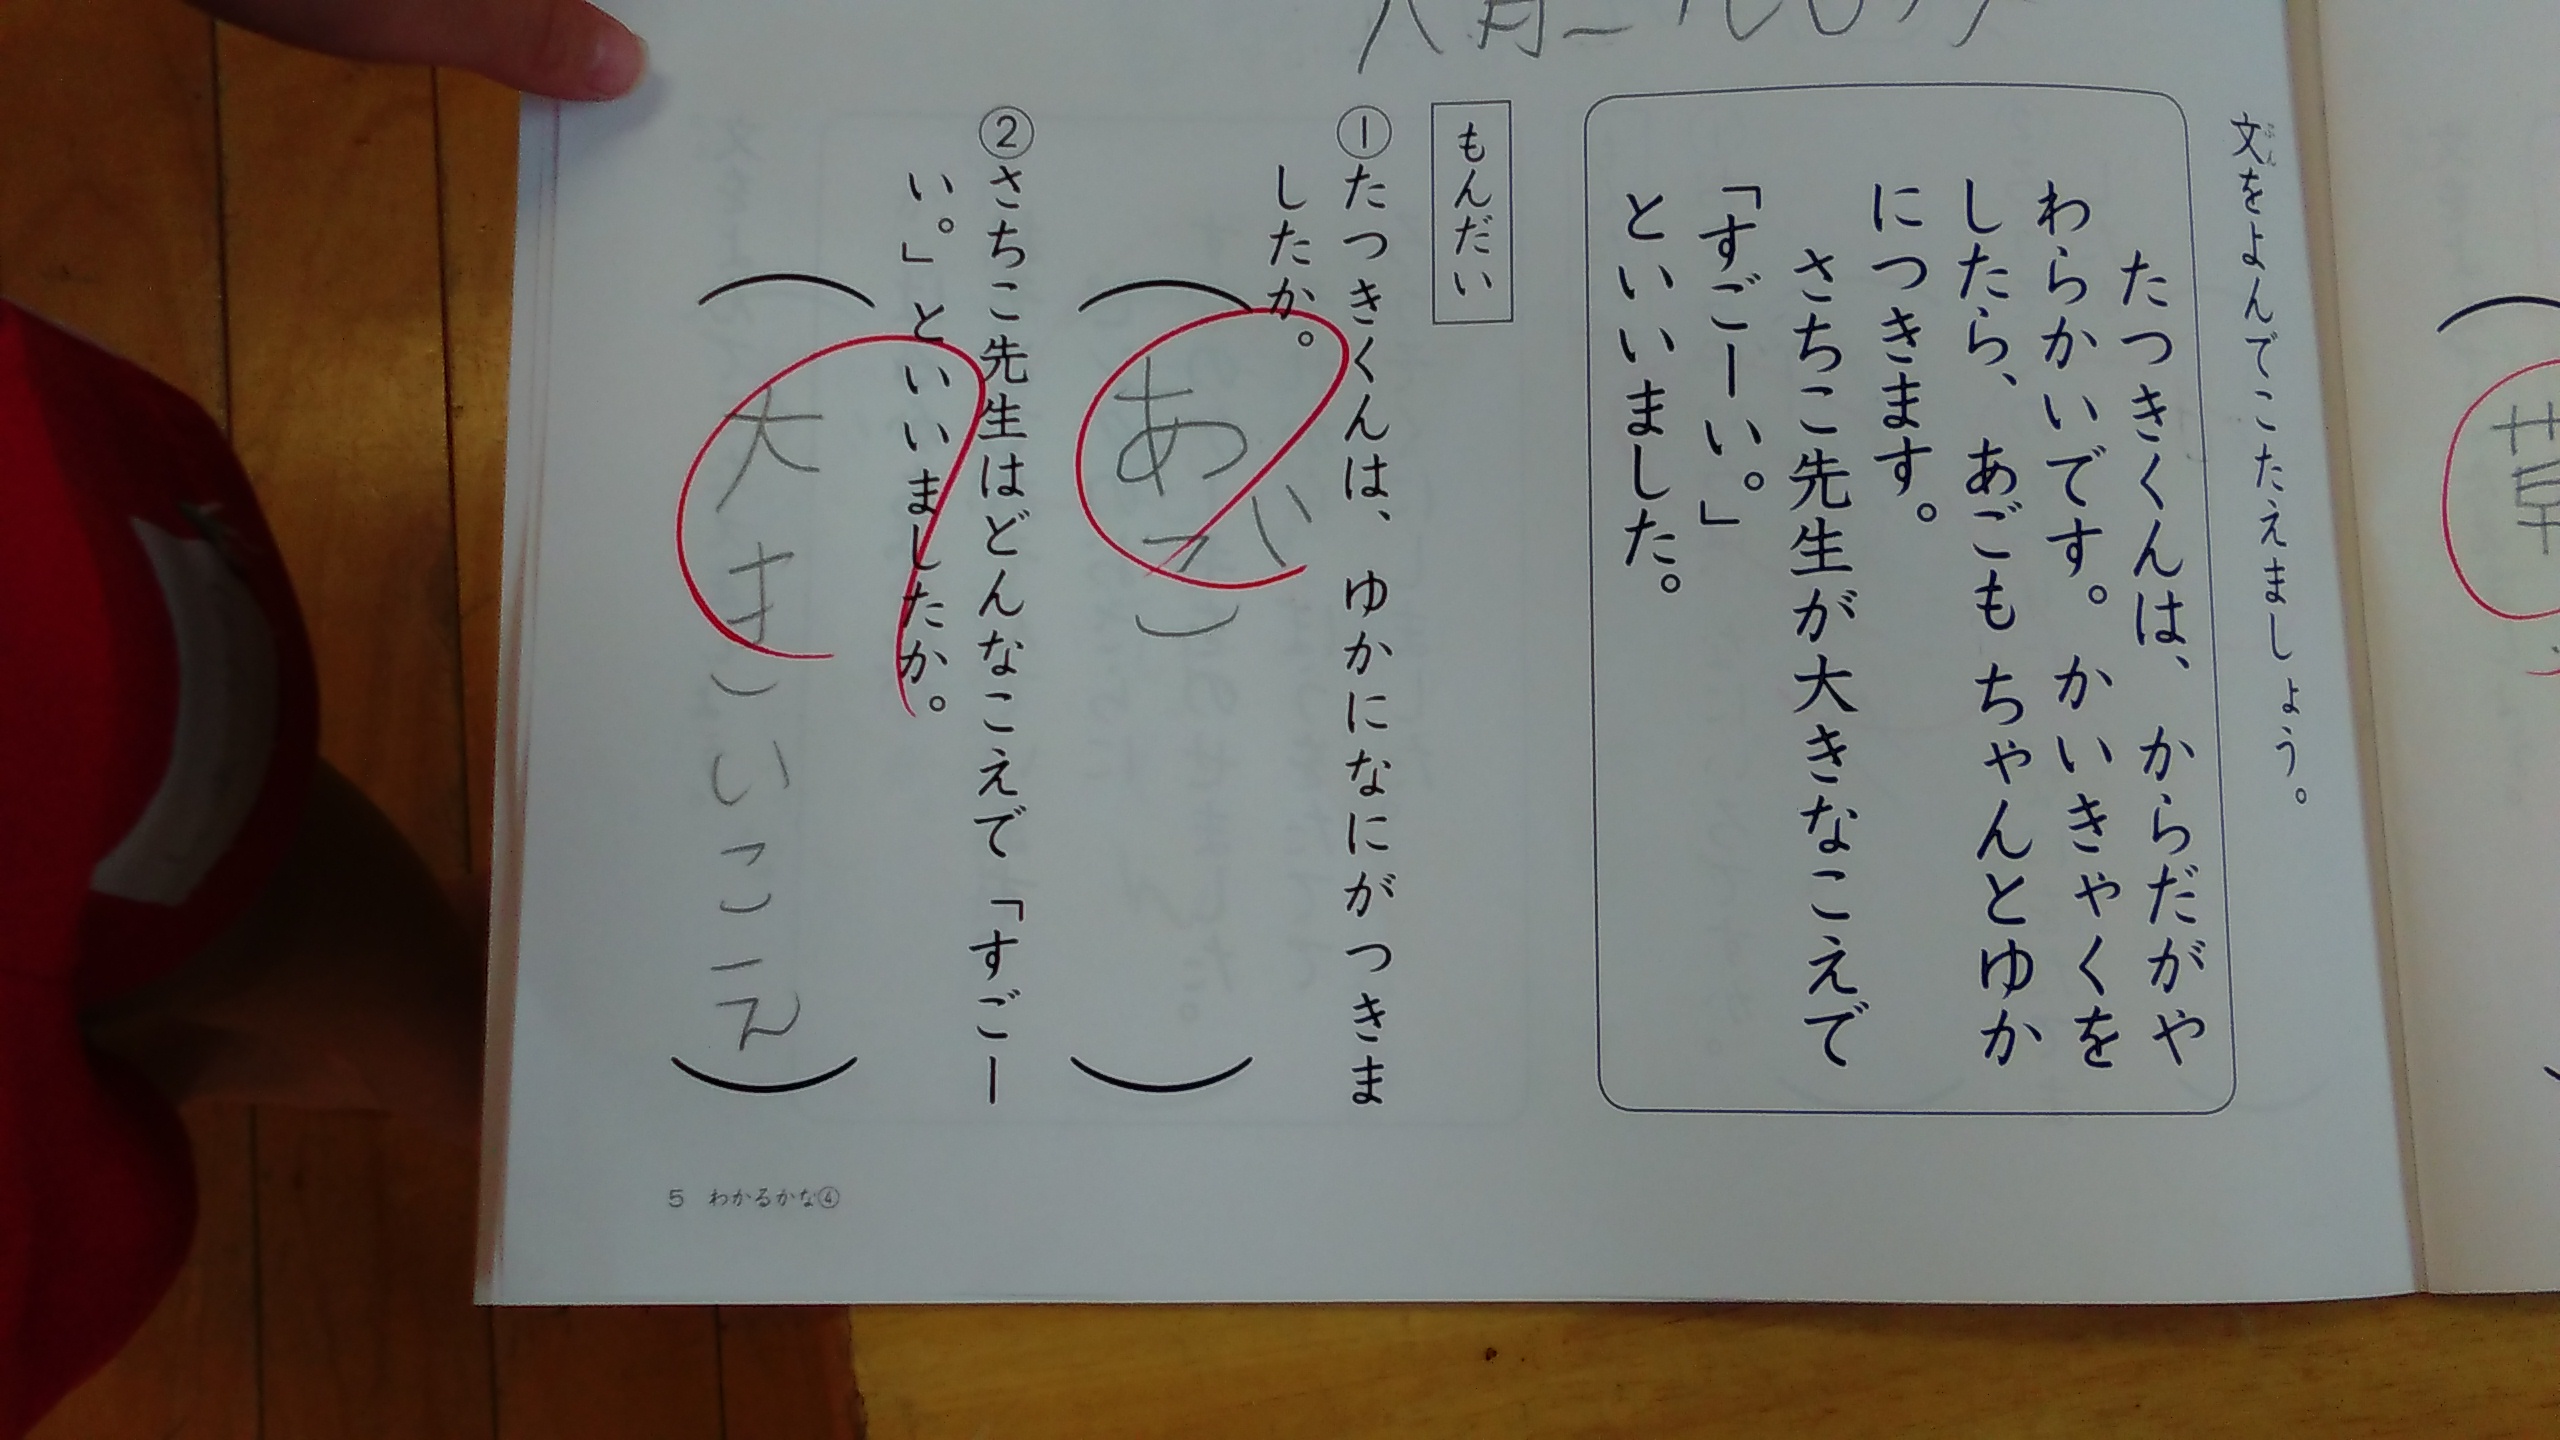 文をよんでこたえましょう。
ぶん
たつきくんは、からだがや
わらかいです。かいきゃくを
したら、あごもちゃんとゆか
につきます。
さちこ先生が大きなこえで
「すごーい。」
といいました。
もんだい
①たつきくんは、ゆかになにがつきま
したか。
あご
②さちこ先生はどんなこえで「すごー
い。」といいましたか。
大きいこえ
5 わかるかな④
草